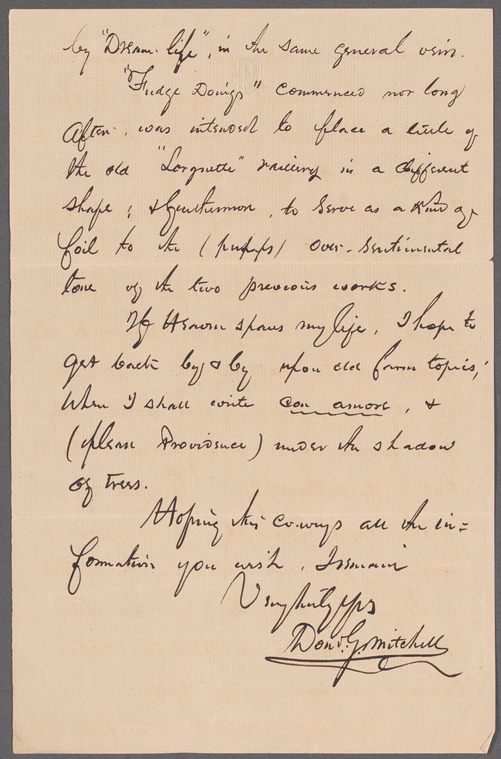 by "Dream-life", in the same general vein.
"Fudge Doings" commenced not long
after, was intended to place a little of
the old "Lorgnette" raillery in a different
shape; & furthermore, to serve as a kind of
foil to the (perhaps) over-sentimental
tone of the two previous works.
If Heaven spares my life, I hope to
get back by & by upon old farm topics,
when I shall write con amore, &
(please Providence) under the shadow
of trees.
Hoping this conveys all the in=
formation you wish, I remain
Very truly yrs
Don. G. Mitchell